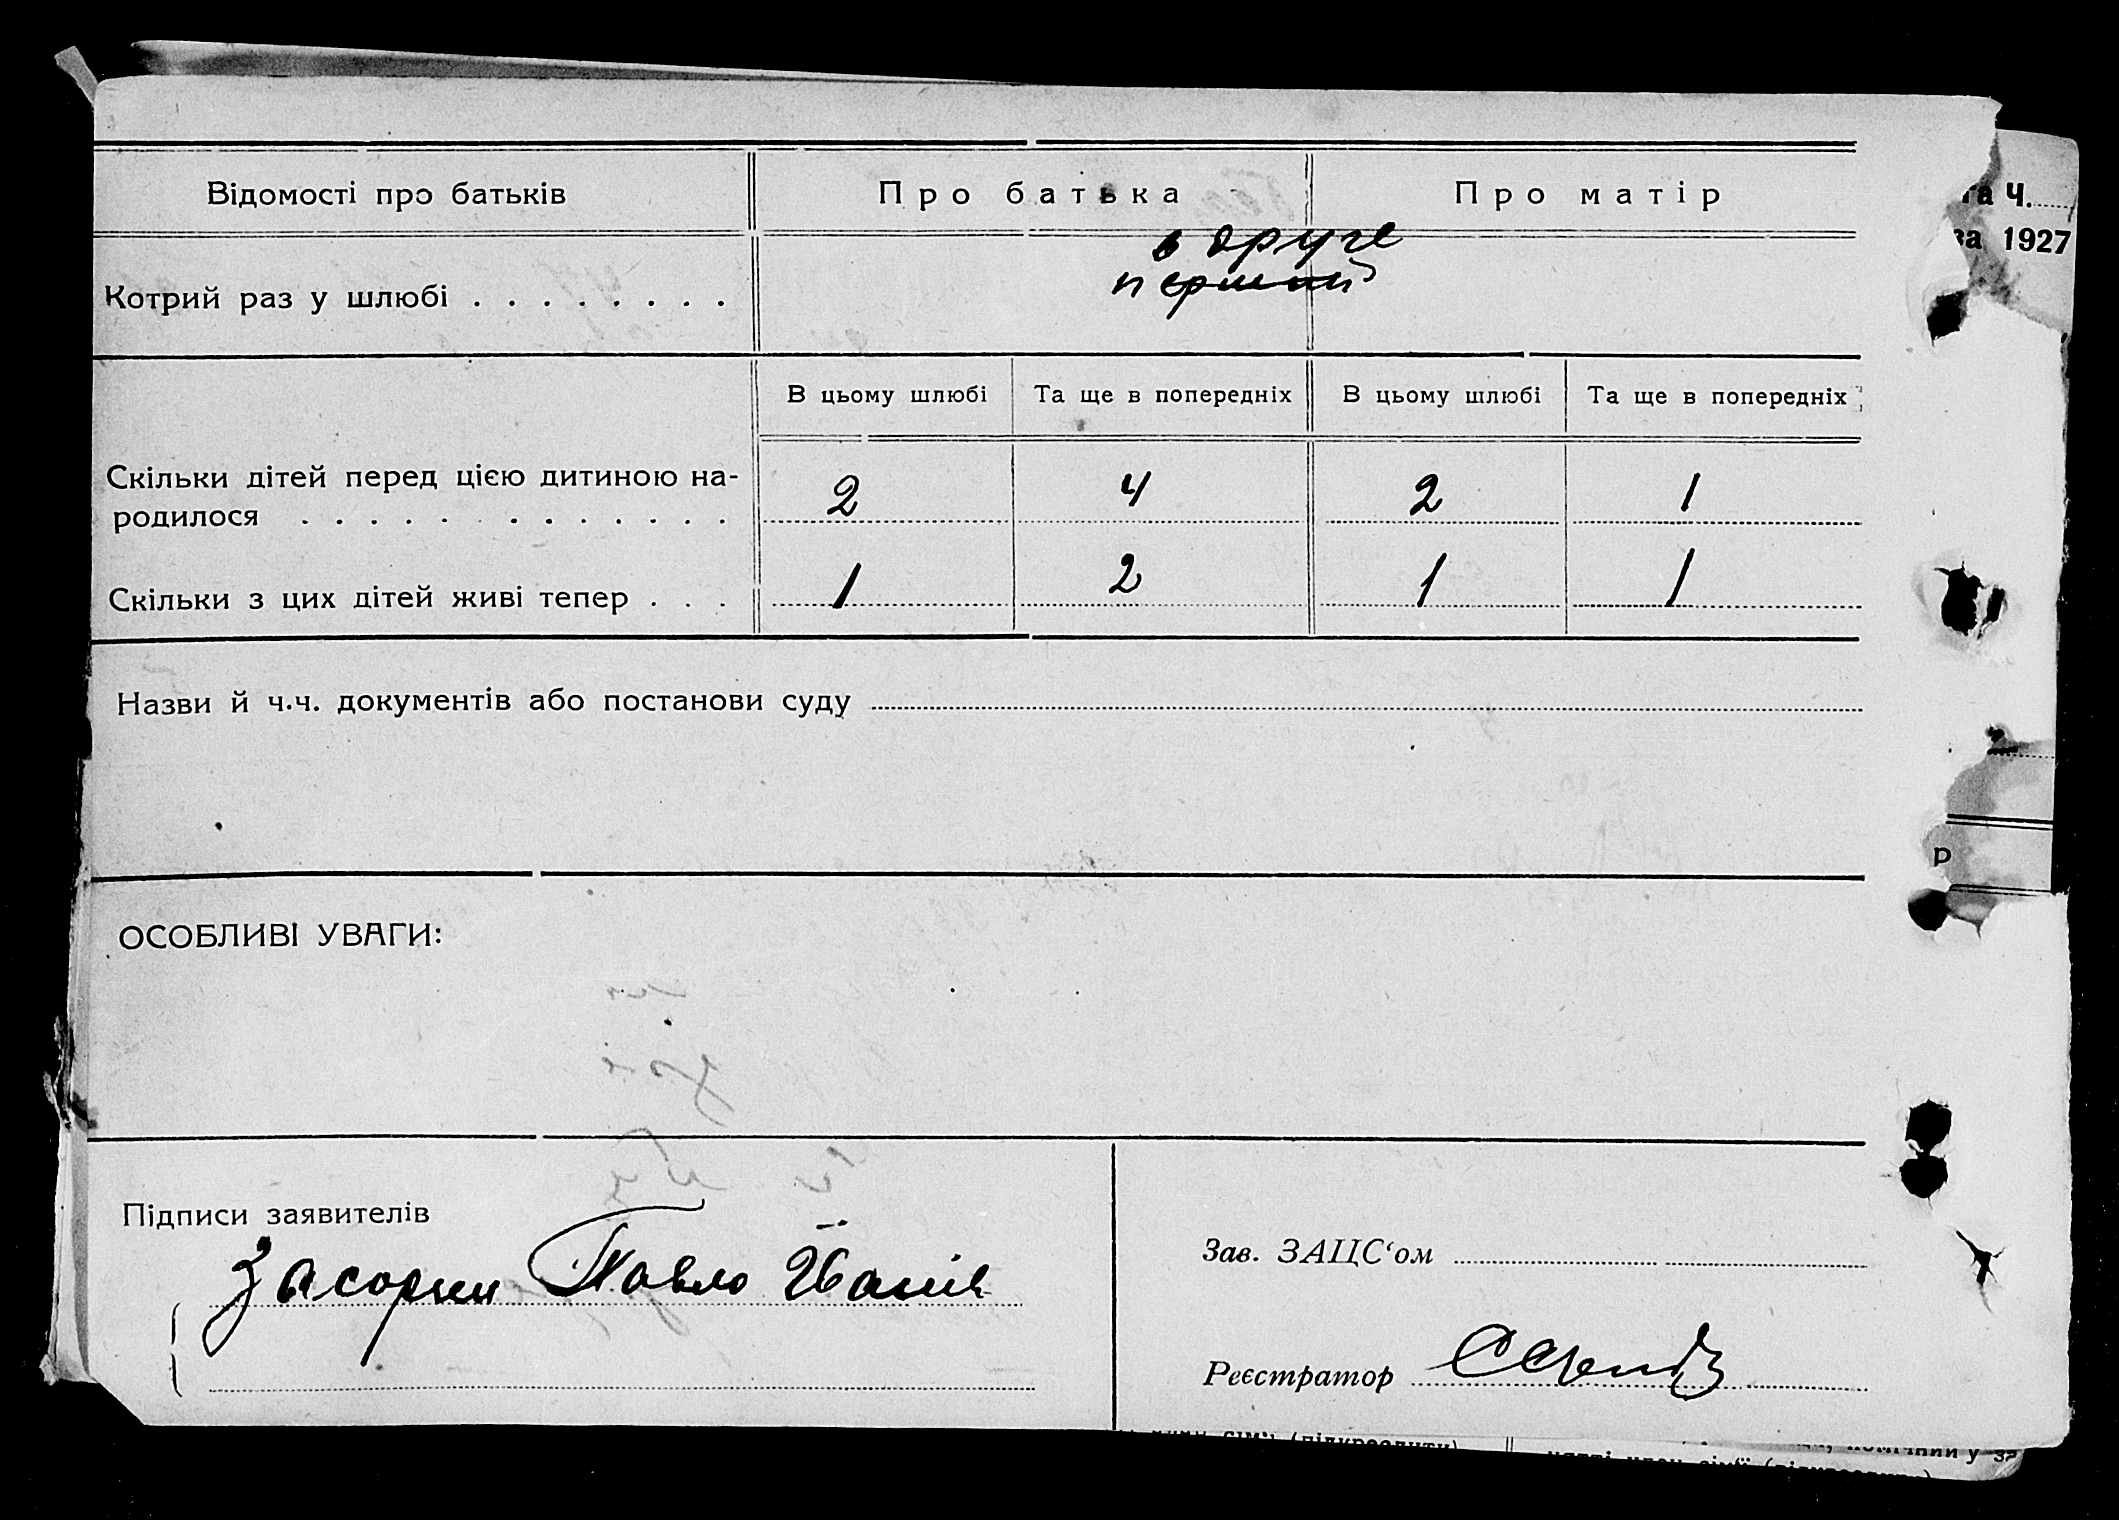 Відомості про батьків Про батька Про матір
та Ч.
за 1927
в друге
Котрий раз у шлюбі . . . . . . . . перший
В цьому шлюбі Та ще в попередніх В цьому шлюбі Та ще в попередніх
Скільки дітей перед цією дитиною на-
родилося . . . . . . . . . . . . . 2 4 2 1
Скільки з цих дітей живі тепер . . . 1 2 1 1
Назви й ч.ч. документів або постанови суду
р
ОСОБЛИВІ УВАГИ:
Підписи заявителів
Павло
Зав. ЗАЦС‘ом
Реєстратор